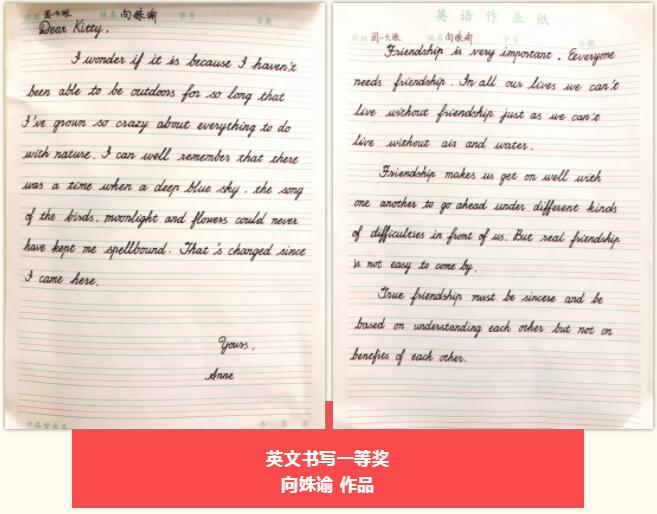 班级 园一大班 姓名 向姝谕 学号 分数
Dear Kitty,
I wonder if it is because I haven't
been able to be outdoors for so long that
I've grown so crazy about everything to do
with nature. I can well remember that there
was a time when a deep blue sky, the song
of the birds, moonlight and flowers could never
have kept me spellbound. That's changed since
I came here.
Yours,
Anne
六品堂作品
年 月 日
英语作业纸
班级 园一大班 姓名 向姝谕 学号 分数
Friendship is very important. Eeveryone
needs friendship. In all our lives we can't
live without friendship just as we can't
live without air and water.
Friendship makes us get on well with
one another to go ahead under different kinds
of difficulties in front of us. But real friendship
is not easy to come by.
True friendship must be sincere and be
based on understanding each other but not on
benefits of each other.
英文书写一等奖
向姝谕 作品